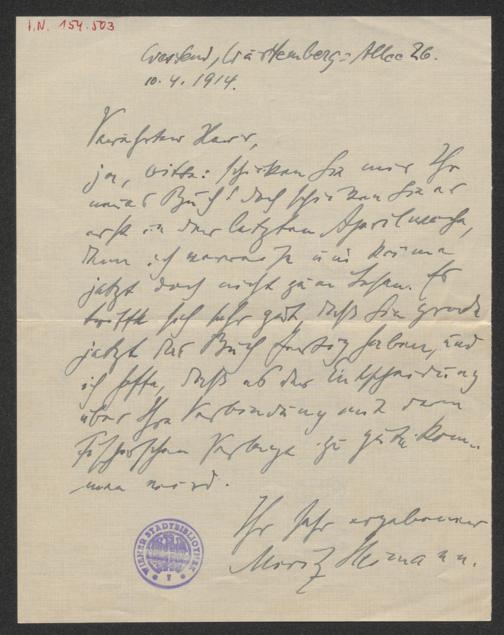 I.N. 154.503
Westend, Württemberg-Allee 26.
10.4.1914.
Verehrter Herr,
ja, bitte: schicken Sie mir Ihr
neues Buch! doch schicken Sie es
erst in der letzten Aprilwoche,
denn ich verreise und käme
jetzt doch nicht zum Lesen. Es
trifft sich sehr gut, daß Sie grade
jetzt das Buch fertig haben, und
ich hoffe, daß es der Entscheidung
über Ihre Verbindung mit dem
Fischerschen Verlage zu gute kom-
men wird.
Ihr sehr ergebener
Moritz Heimann.
WIENER STADTBIBLIOTHEK